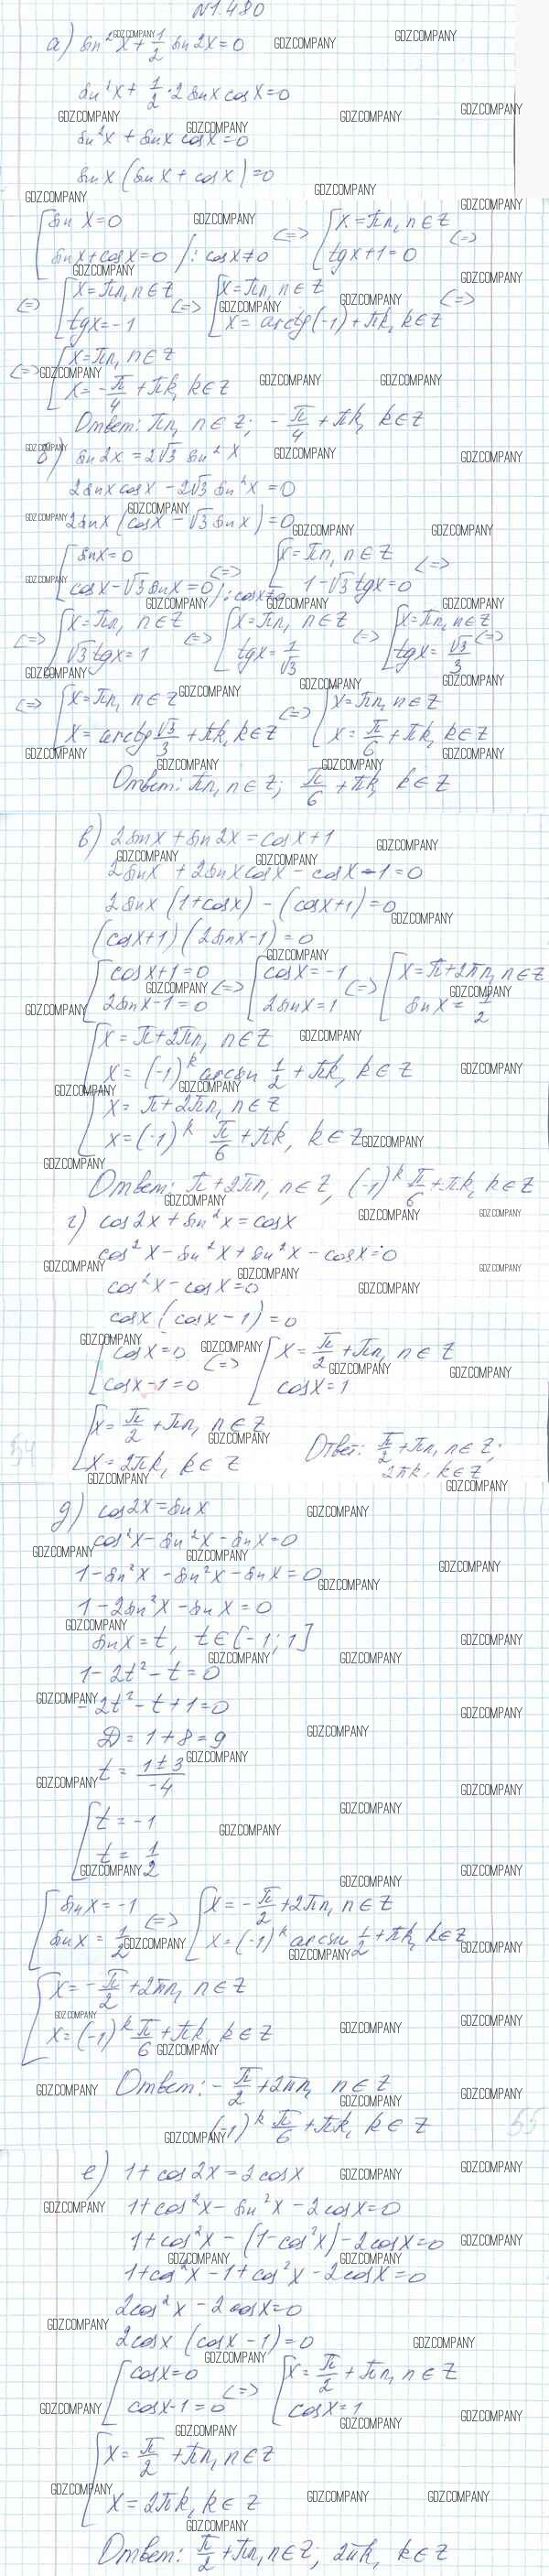 N1.480
а) sin²x + 1/2 sin 2x = 0
sin²x + 1/2 · 2 sin x cos x = 0
sin²x + sin x cos x = 0
sin x (sin x + cos x) = 0
[ sin x = 0 <=> [ x = πn, n ∈ Z <=>
sin x + cos x = 0 / : cos x ≠ 0 tg x + 1 = 0
<=> [ x = πn, n ∈ Z <=> [ x = πn, n ∈ Z <=>
tg x = -1 x = arctg(-1) + πk, k ∈ Z
<=> [ x = πn, n ∈ Z
x = -π/4 + πk, k ∈ Z
Ответ: πn, n ∈ Z; -π/4 + πk, k ∈ Z
б) sin 2x = 2√3 sin²x
2 sin x cos x - 2√3 sin²x = 0
2 sin x (cos x - √3 sin x) = 0
[ sin x = 0 <=> [ x = πn, n ∈ Z <=>
cos x - √3 sin x = 0 / : cos x ≠ 0 1 - √3 tg x = 0
<=> [ x = πn, n ∈ Z <=> [ x = πn, n ∈ Z <=> [ x = πn, n ∈ Z <=>
√3 tg x = 1 tg x = 1/√3 tg x = √3/3
<=> [ x = πn, n ∈ Z <=> [ x = πn, n ∈ Z
x = arctg √3/3 + πk, k ∈ Z x = π/6 + πk, k ∈ Z
Ответ: πn, n ∈ Z; π/6 + πk, k ∈ Z
в) 2 sin x + sin 2x = cos x + 1
2 sin x + 2 sin x cos x - cos x - 1 = 0
2 sin x (1 + cos x) - (cos x + 1) = 0
(cos x + 1)(2 sin x - 1) = 0
[ cos x + 1 = 0 <=> [ cos x = -1 <=> [ x = π + 2πn, n ∈ Z
2 sin x - 1 = 0 2 sin x = 1 sin x = 1/2
[ x = π + 2πn, n ∈ Z
x = (-1)^k arcsin 1/2 + πk, k ∈ Z
[ x = π + 2πn, n ∈ Z
x = (-1)^k π/6 + πk, k ∈ Z
Ответ: π + 2πn, n ∈ Z, (-1)^k π/6 + πk, k ∈ Z
г) cos 2x + sin²x = cos x
cos²x - sin²x + sin²x - cos x = 0
cos²x - cos x = 0
cos x (cos x - 1) = 0
[ cos x = 0 <=> [ x = π/2 + πn, n ∈ Z
cos x - 1 = 0 cos x = 1
[ x = π/2 + πn, n ∈ Z
x = 2πk, k ∈ Z
Ответ: π/2 + πn, n ∈ Z;
2πk, k ∈ Z
д) cos 2x = sin x
cos²x - sin²x - sin x = 0
1 - sin²x - sin²x - sin x = 0
1 - 2 sin²x - sin x = 0
sin x = t, t ∈ [-1; 1]
1 - 2t² - t = 0
-2t² - t + 1 = 0
D = 1 + 8 = 9
t = (1 ± 3)/-4
[ t = -1
t = 1/2
[ sin x = -1 <=> [ x = -π/2 + 2πn, n ∈ Z
sin x = 1/2 x = (-1)^k arcsin 1/2 + πk, k ∈ Z
[ x = -π/2 + 2πn, n ∈ Z
x = (-1)^k π/6 + πk, k ∈ Z
Ответ: -π/2 + 2πn, n ∈ Z
(-1)^k π/6 + πk, k ∈ Z
55
е) 1 + cos 2x = 2 cos x
1 + cos²x - sin²x - 2 cos x = 0
1 + cos²x - (1 - cos²x) - 2 cos x = 0
1 + cos²x - 1 + cos²x - 2 cos x = 0
2 cos²x - 2 cos x = 0
2 cos x (cos x - 1) = 0
[ cos x = 0 <=> [ x = π/2 + πn, n ∈ Z
cos x - 1 = 0 cos x = 1
[ x = π/2 + πn, n ∈ Z
x = 2πk, k ∈ Z
Ответ: π/2 + πn, n ∈ Z; 2πk, k ∈ Z
GDZ.COMPANY